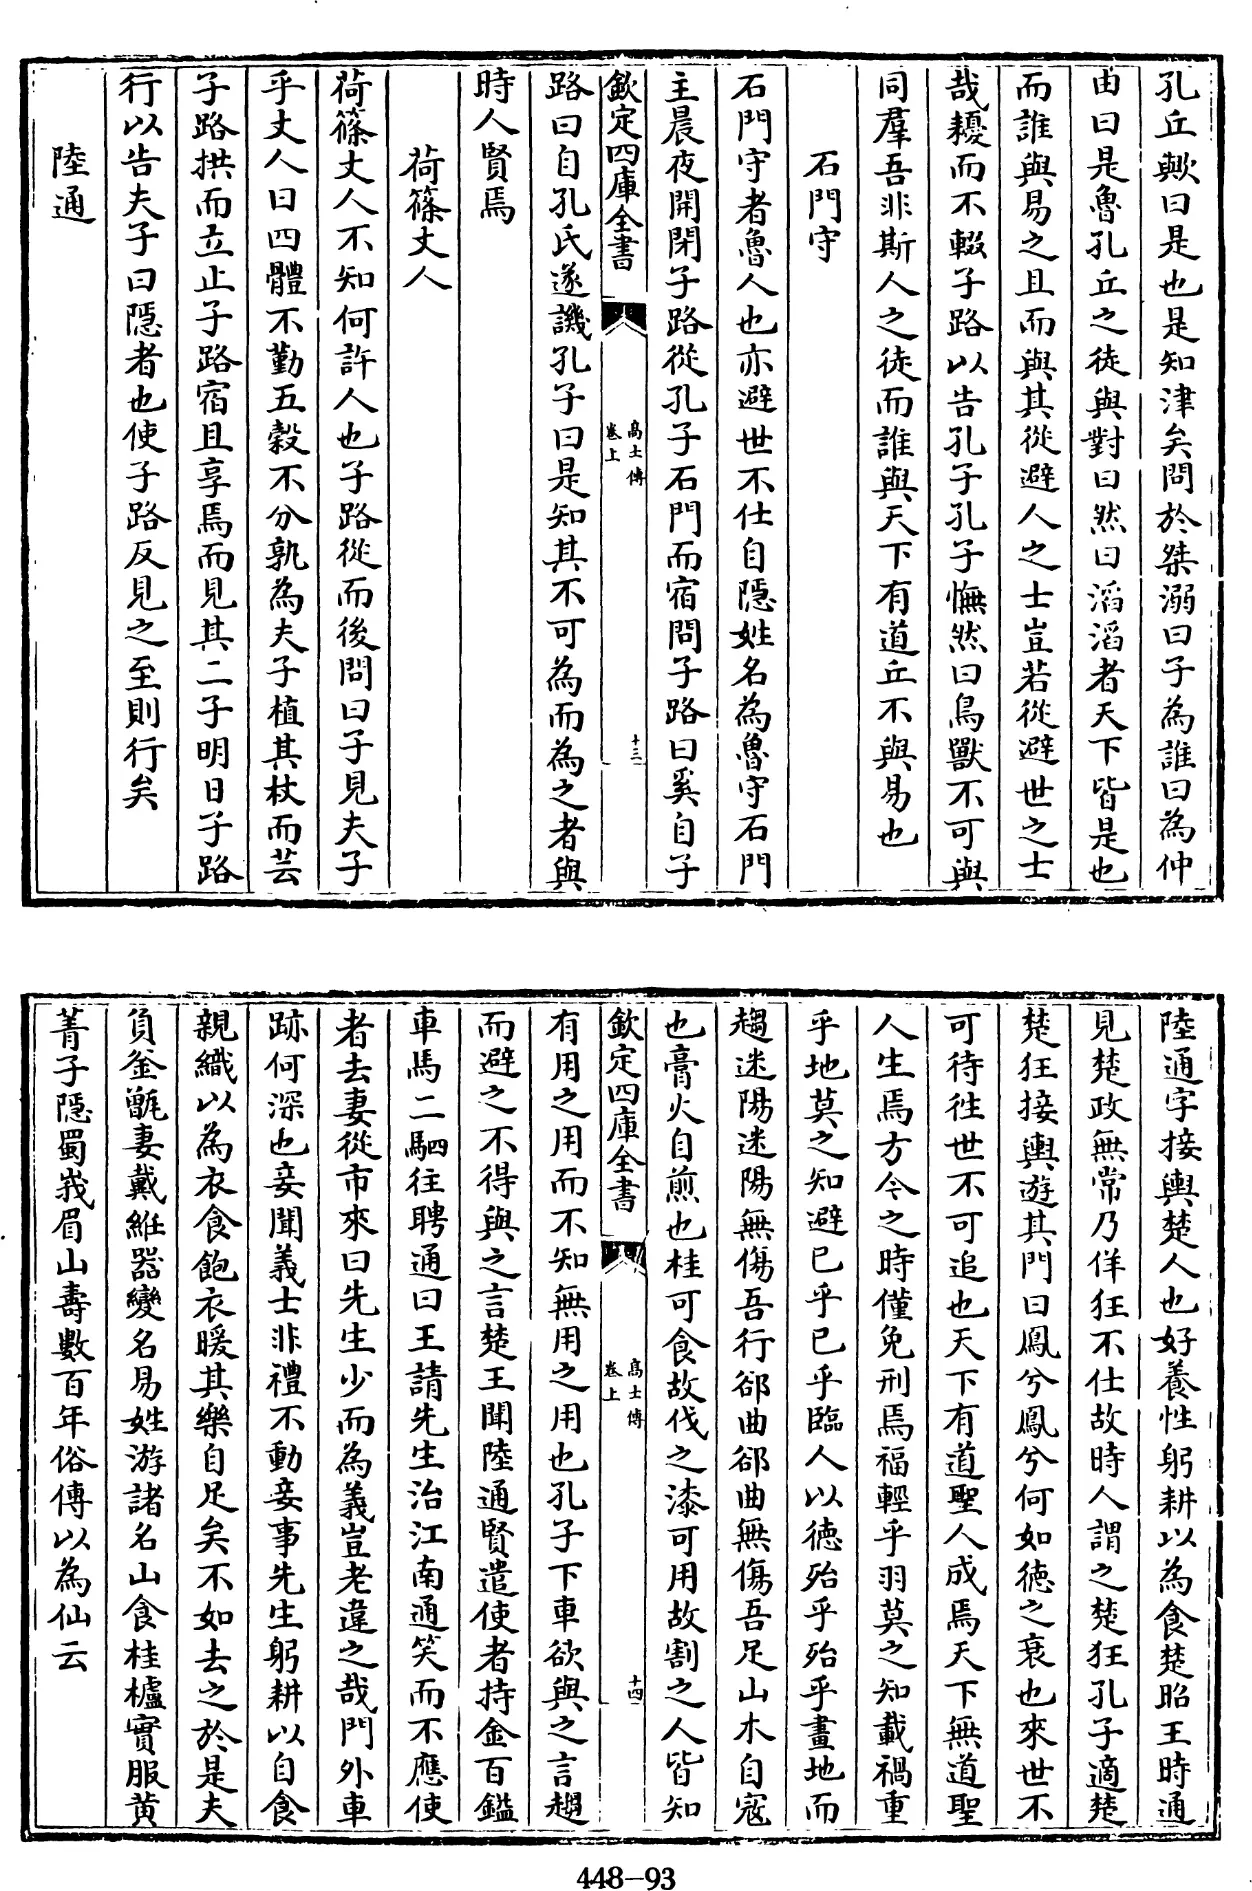 孔丘歟曰是也是知津矣問於桀溺曰子為誰曰為仲
由曰是魯孔丘之徒與對曰然曰滔滔者天下皆是也
而誰與易之且而與其從避人之士豈若從避世之士
哉耰而不輟子路以告孔子孔子憮然曰鳥獸不可與
同羣吾非斯人之徒而誰與天下有道丘不與易也
石門守
石門守者魯人也亦避世不仕自隱姓名為魯守石門
主晨夜開閉子路從孔子石門而宿問子路曰奚自子
欽定四庫全書
高士傳
卷上
十三
路曰自孔氏遂譏孔子曰是知其不可為而為之者與
時人賢焉
荷篠丈人
荷篠丈人不知何許人也子路從而後問曰子見夫子
乎丈人曰四體不勤五穀不分孰為夫子植其杖而芸
子路拱而立止子路宿且享焉而見其二子明日子路
行以告夫子曰隱者也使子路反見之至則行矣
陸通
陸通字接輿楚人也好養性躬耕以為食楚昭王時通
見楚政無常乃佯狂不仕故時人謂之楚狂孔子適楚
楚狂接輿遊其門曰鳳兮鳳兮何如德之衰也來世不
可待往世不可追也天下有道聖人成焉天下無道聖
人生焉方今之時僅免刑焉福輕乎羽莫之知載禍重
乎地莫之知避已乎已乎臨人以德殆乎殆乎畫地而
趨迷陽迷陽無傷吾行郤曲郤曲無傷吾足山木自寇
也膏火自煎也桂可食故伐之漆可用故割之人皆知
欽定四庫全書
高士傳
卷上
十四
有用之用而不知無用之用也孔子下車欲與之言趨
而避之不得與之言楚王聞陸通賢遣使者持金百鎰
車馬二駟往聘通曰王請先生治江南通笑而不應使
者去妻從市來曰先生少而為義豈老違之哉門外車
跡何深也妾聞義士非禮不動妾事先生躬耕以自食
親織以為衣食飽衣暖其樂自足矣不如去之於是夫
負釜甑妻戴紝器變名易姓游諸名山食桂櫨實服黃
菁子隱蜀峩眉山壽數百年俗傳以為仙云
448-93